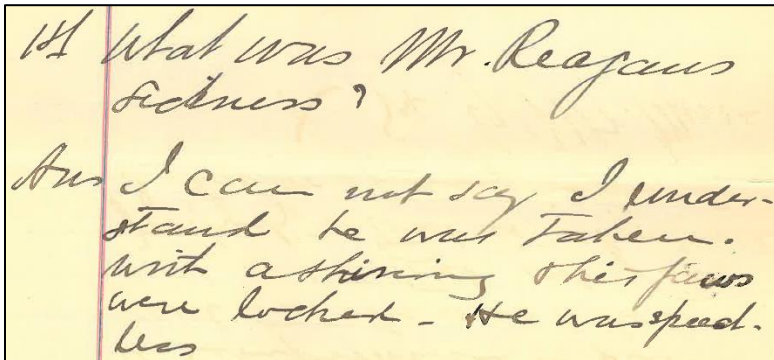 1st What was Mr. Reagans
sickness?
Ans I can not say I under-
stand he was taken.
wit a shivering & his jaws
were locked - He was speech-
less